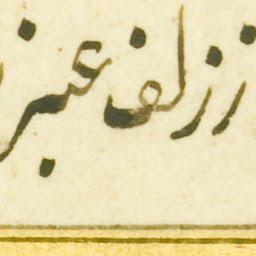 ز زلف عنبر